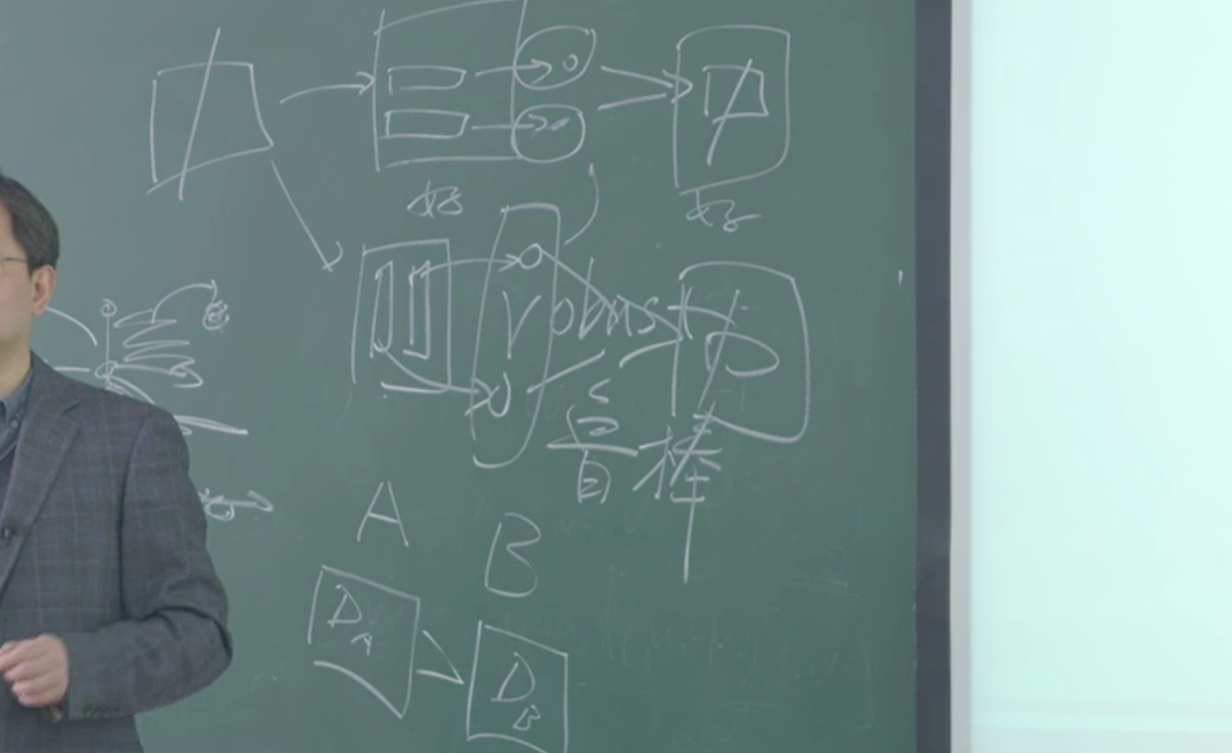 好
好
robust
鲁棒
A
B
D_A
D_B